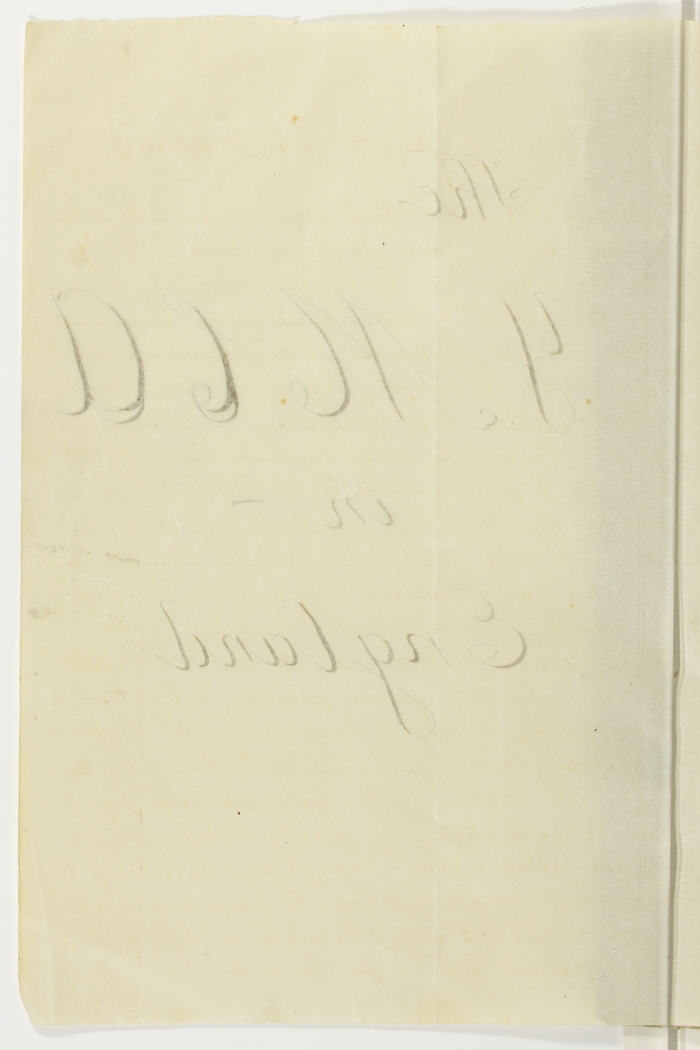 The
Y M C A
in -
England